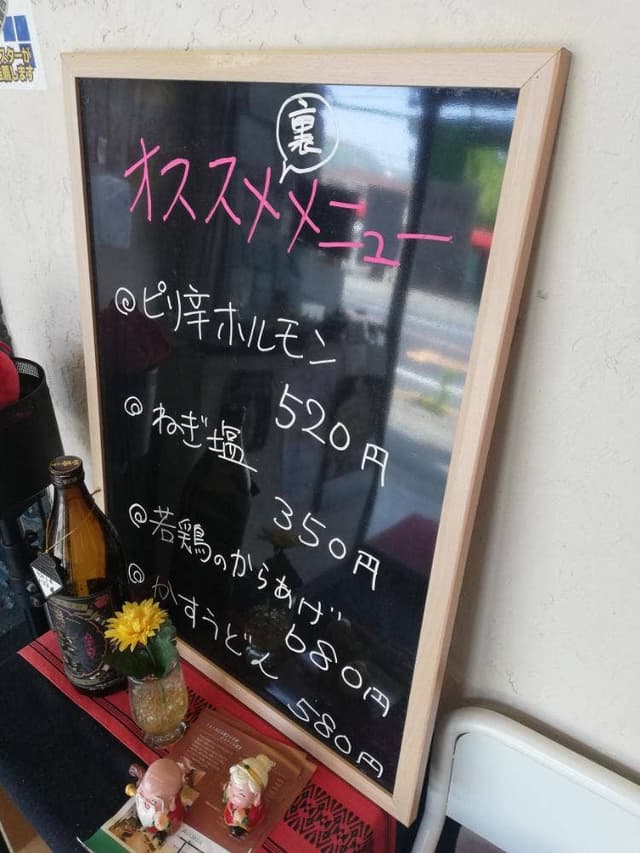 裏
オススメメニュー
@ピリ辛ホルモン
520円
@ねぎ塩
350円
@若鶏のからあげ
680円
@かすうどん
580円